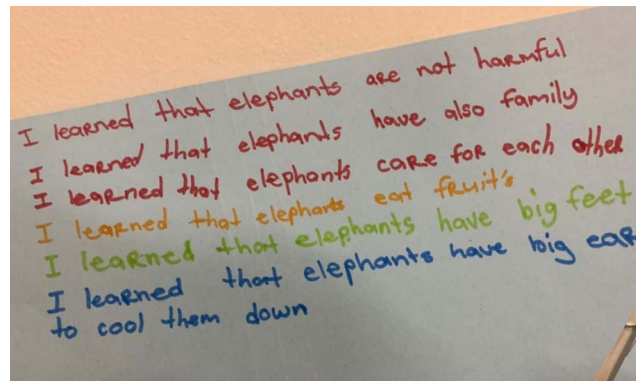 I learned that elephants are not harmful
I learned that elephants have also family
I learned that elephants care for each other
I learned that elephants eat fruit's
I learned that elephants have big feet
I learned that elephants have big ear
to cool them down